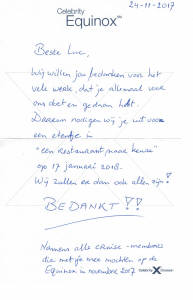 Celebrity
Equinox℠
24-11-2017
Beste Luc,
Wij willen jou bedanken voor het
vele werk, dat je allemaal voor
ons doet en gedaan hebt.
Daarom nodigen wij je uit voor
een etentje in
"een Restaurant naar keuze"
op 17 januari 2018.
Wij zullen er dan ook allen zijn!
BEDANKT!!
Namens alle cruise-members
die met jou mee mochten op de
Equinox in november 2017
Celebrity X Cruises